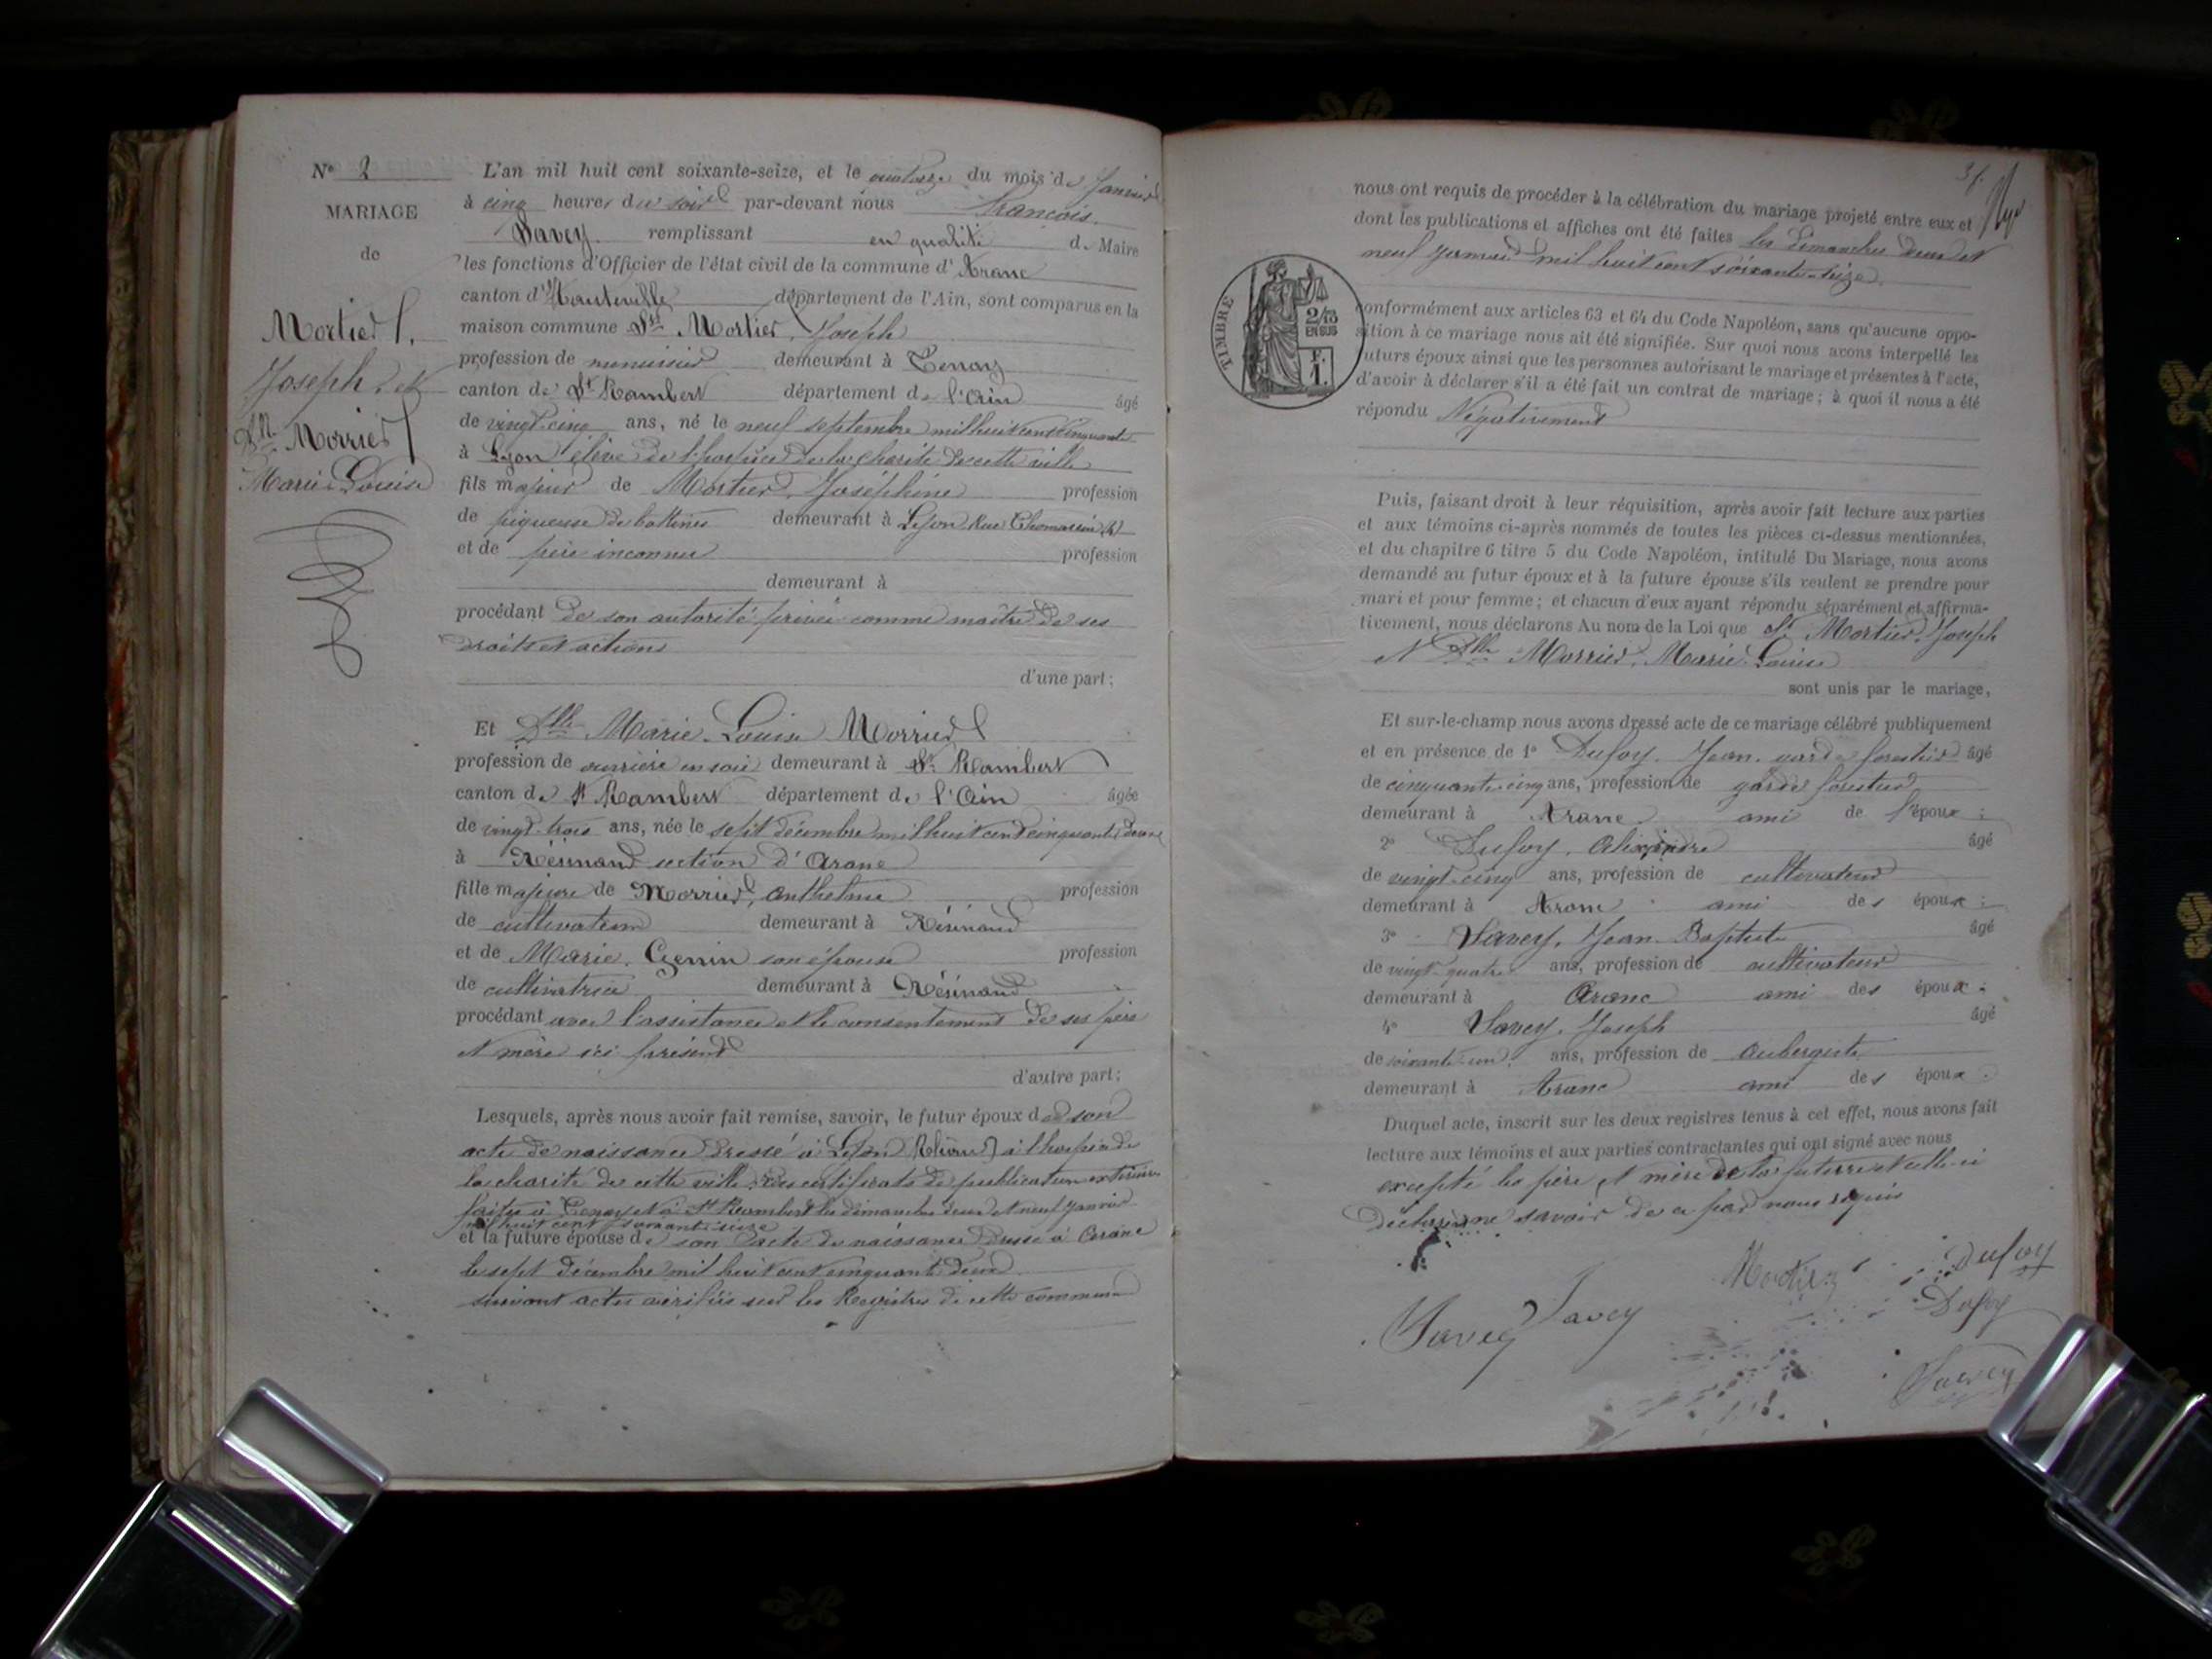 N° 2
MARIAGE
de
Mortier
Joseph et
Dlle Morrier
Marie Louise
L'an mil huit cent soixante-seize, et le quatorze du mois de Janvier
à cinq heures du soir par-devant nous François
Savey remplissant en qualité de Maire
les fonctions d'Officier de l'état civil de la commune d'Aranc
canton d'Hauteville département de l'Ain, sont comparus en la
maison commune Sr Mortier, Joseph
profession de menuisier demeurant à Tenay
canton de St Rambert département de l'Ain âgé
de vingt-cinq ans, né le neuf septembre mil huit cent cinquante
à Lyon élève de l'hospice de la charité de cette ville
fils majeur de Mortier, Joséphine profession
de piqueuse de bottines demeurant à Lyon Rue Thomassin
et de père inconnu profession
demeurant à
procédant de son autorité privée comme maître de ses
droits et actions
d'une part;
Et Dlle Marie Louise Morrier
profession de ouvrière en soie demeurant à St Rambert
canton de St Rambert département de l'Ain âgée
de vingt-trois ans, née le sept décembre mil huit cent cinquante deux
à Résinand section d'Aranc
fille majeure de Morrier, Anthelme profession
de cultivateur demeurant à Résinand
et de Marie, Genin son épouse profession
de cultivatrice demeurant à Résinand
procédant avec l'assistance et le consentement de ses père
et mère ici présents
d'autre part;
Lesquels, après nous avoir fait remise, savoir, le futur époux de son
acte de naissance dressé à Lyon (Rhône) à l'hospice de
la charité de cette ville, certificats de publication extérieure
faites à Tenay et à St Rambert les dimanches deux et neuf janvier
mil huit cent soixante-seize
et la future épouse de son acte de naissance dressé à Aranc
le sept décembre mil huit cent cinquante deux
suivant actes vérifiés sur les Registres de cette commune
nous ont requis de procéder à la célébration du mariage projeté entre eux et
dont les publications et affiches ont été faites les dimanches deux et
neuf janvier mil huit cent soixante-seize
TIMBRE
2/10
EN SUS
F.
1.
conformément aux articles 63 et 64 du Code Napoléon, sans qu'aucune oppo-
sition à ce mariage nous ait été signifiée. Sur quoi nous avons interpellé les
futurs époux ainsi que les personnes autorisant le mariage et présentes à l'acte,
d'avoir à déclarer s'il a été fait un contrat de mariage; à quoi il nous a été
répondu Négativement
Puis, faisant droit à leur réquisition, après avoir fait lecture aux parties
et aux témoins ci-après nommés de toutes les pièces ci-dessus mentionnées,
et du chapitre 6 titre 5 du Code Napoléon, intitulé Du Mariage, nous avons
demandé au futur époux et à la future épouse s'ils veulent se prendre pour
mari et pour femme; et chacun d'eux ayant répondu séparément et affirma-
tivement, nous déclarons Au nom de la Loi que Sr Mortier, Joseph
et Dlle Morrier, Marie Louise
sont unis par le mariage,
Et sur-le-champ nous avons dressé acte de ce mariage célébré publiquement
et en présence de 1° Dufoy, Jean, garde forestier âgé
de cinquante-cinq ans, profession de garde forestier
demeurant à Aranc ami de l'époux;
2° Dufoy, Alexandre âgé
de vingt-cinq ans, profession de cultivateur
demeurant à Aranc ami des époux;
3° Savey, Jean-Baptiste âgé
de vingt-quatre ans, profession de cultivateur
demeurant à Aranc ami des époux;
4° Savey, Joseph âgé
de soixante-un ans, profession de Aubergiste
demeurant à Aranc ami des époux.
Duquel acte, inscrit sur les deux registres tenus à cet effet, nous avons fait
lecture aux témoins et aux parties contractantes qui ont signé avec nous
excepté les père et mère de la future et celle-ci
ne savoir de ce par nous requis
Mortier
Dufoy
Dufoy
Savey
Savey
Savey